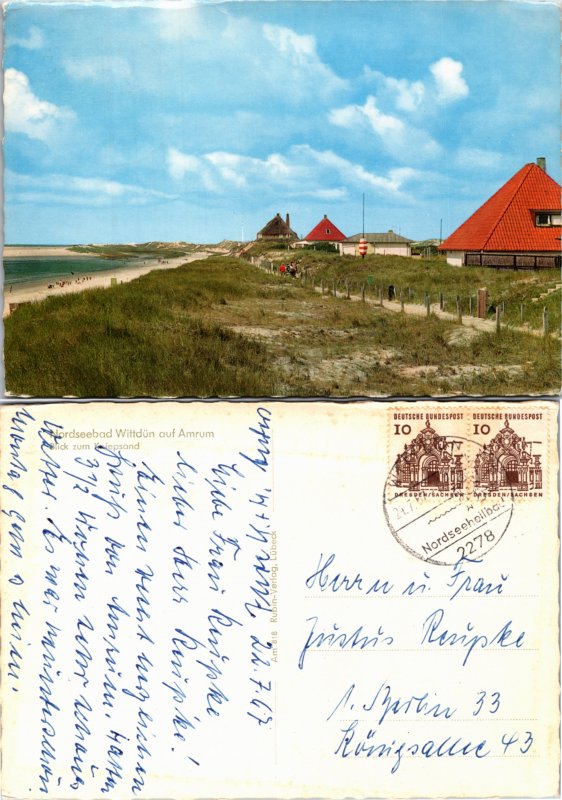 Nordseebad Wittdün auf Amrum
Blick zum Kniepsand
Am 618 Rubin-Verlag, Lübeck
DEUTSCHE BUNDESPOST
10
DRESDEN/SACHSEN
DEUTSCHE BUNDESPOST
10
DRESDEN/SACHSEN
Nordseeheilbad
2278
22.7.67
Liebe Frau Reupke
lieber Herr Reupke!
Ihnen einen
Gruß von Amrum. Hatten
3 1/2 Wochen sehr schönes
Wetter. Es war wunderschön
Montag geht es
heim.
Herrn u. Frau
Justus Reupke
1 Berlin 33
Königsallee 43